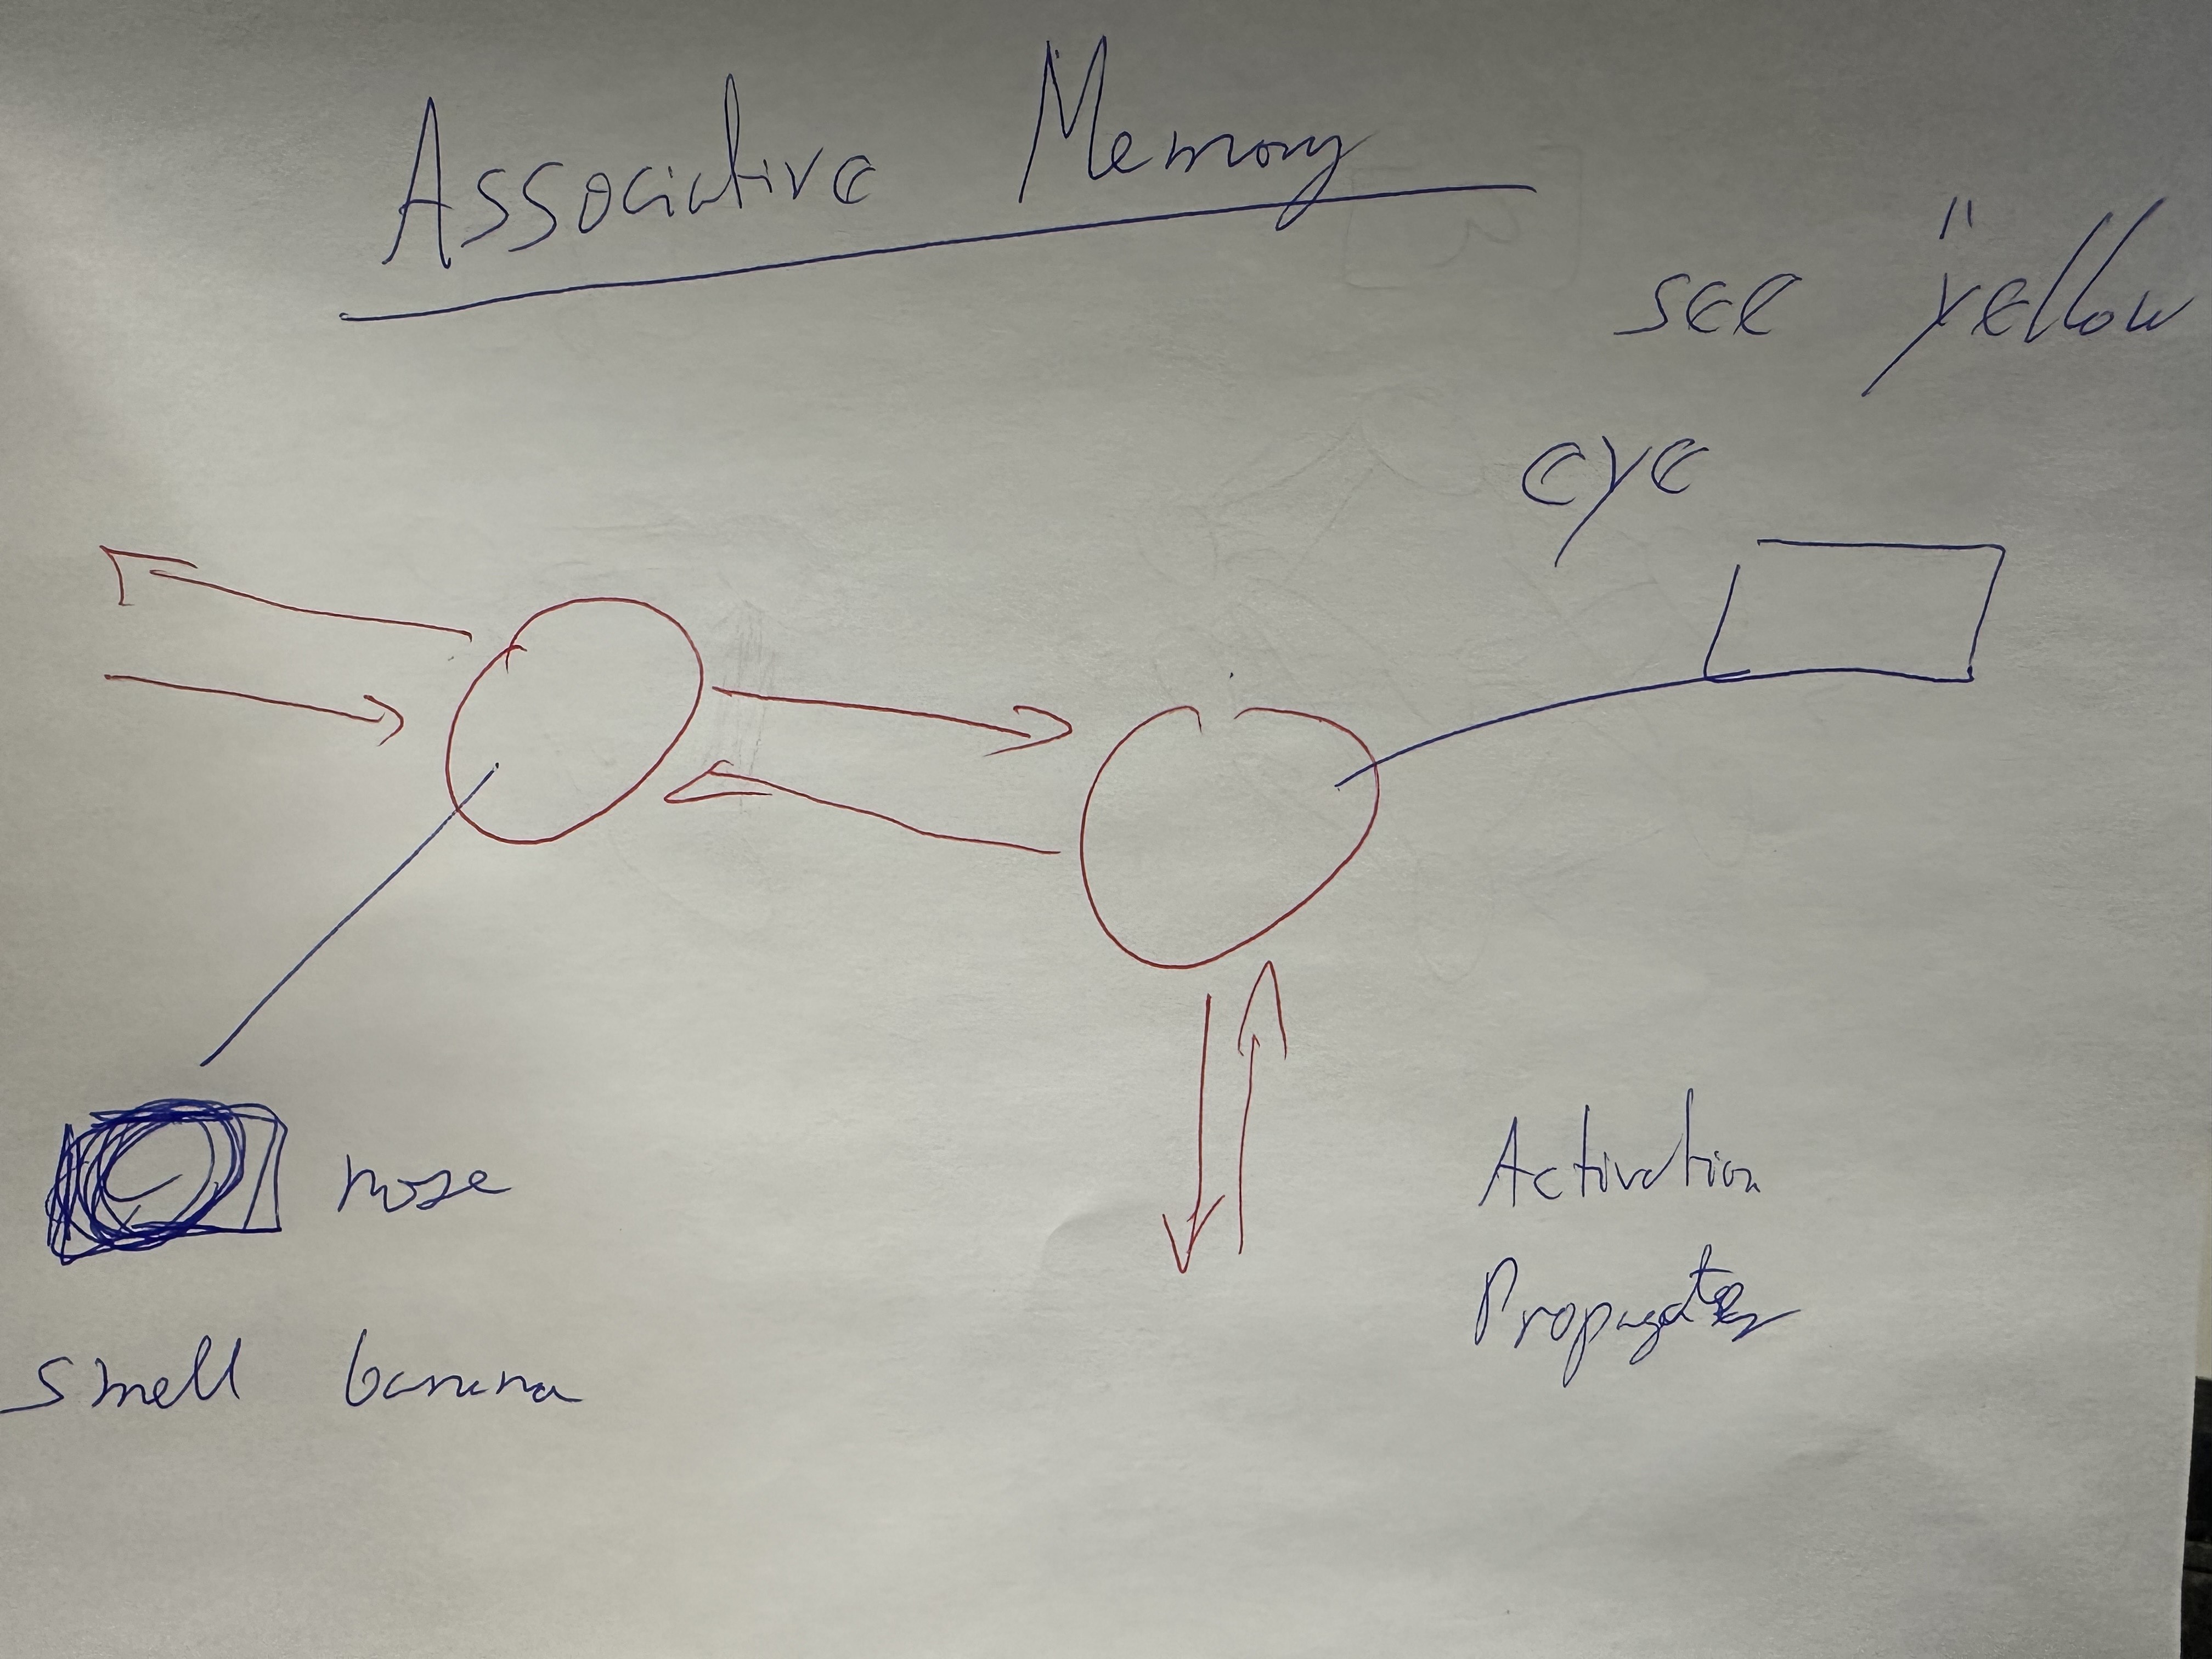 Associative Memory
see "yellow
eye
nose
smell banana
Activation